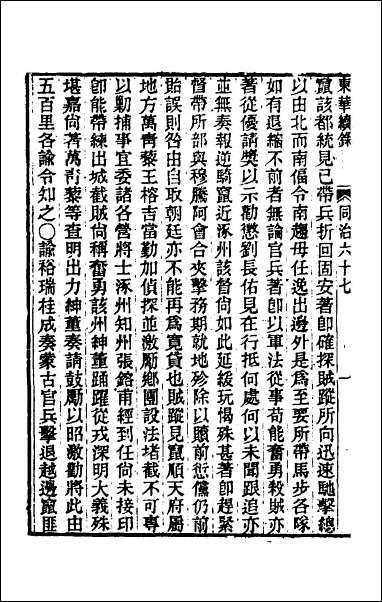 東華續錄 同治六十七 一
竄該都統見已帶兵折回固安著卽確探賊蹤所向迅速馳擊總
以由北而南偪令南趨毋任逸出邊外是爲至要所帶馬步各隊
如有退縮不前者無論官兵著卽以軍法從事茍能奮勇殺賊亦
著從優請獎以示勸懲劉長佑見在行抵何處何以未聞跟追亦
並無奏報逆騎竄近涿州該督尙如此延緩玩愒殊甚著卽趕緊
督帶所部與穆騰阿會合夾擊務期就地殄除以贖前愆儻仍前
貽誤則咎由自取朝廷亦不能再爲寬貸也賊蹤見竄順天府屬
地方萬青藜王榕吉當勤加偵探並激勵鄉團設法堵截不可專
以勦捕事宜委諸各營將士涿州知州張鎔甫經到任尙未接印
卽能帶練出城截賊尙稱奮勇該州紳董踴躍從戎深明大義殊
堪嘉尙著萬青藜等查明出力紳董奏請鼓勵以昭激勸將此由
五百里各諭令知之○諭裕瑞桂成奏蒙古官兵擊退越邊竄匪